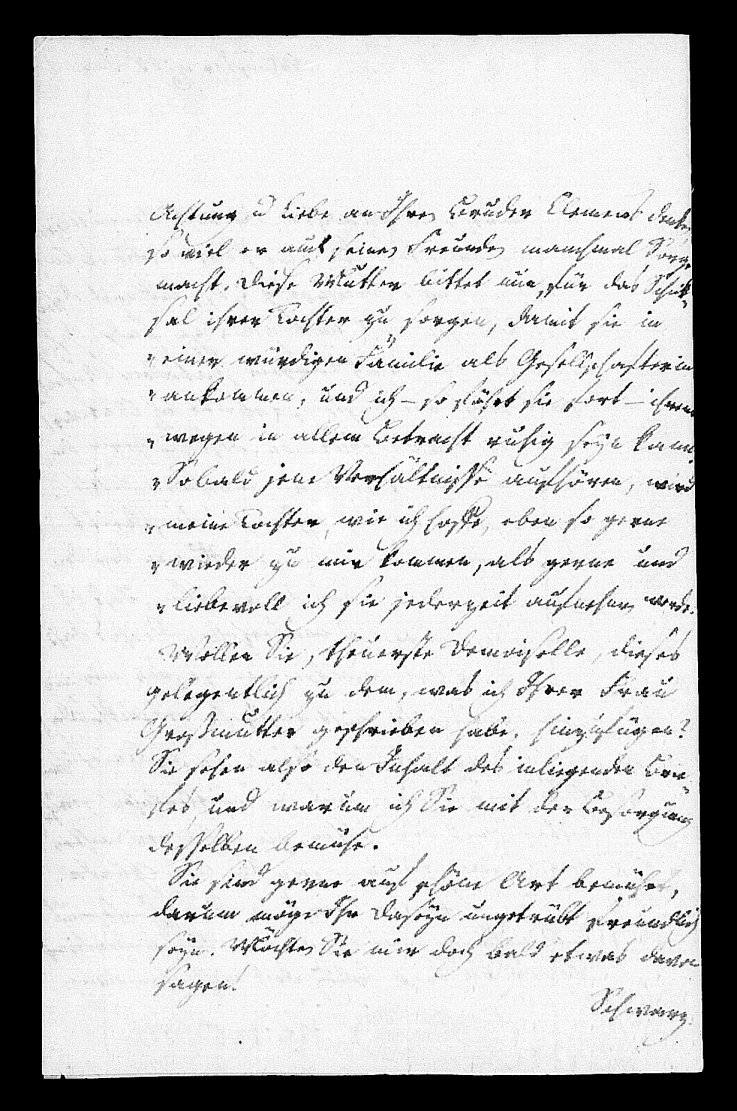 Achtung u Liebe an Ihren Bruder Clemens denken
so viel er auch seinen Freunden manchmal Sorge
macht. Diese Mutter bittet nun, für das Schick-
sal ihrer Tochter zu sorgen, damit sie in
„einer würdigen Familie als Gesellschafterin
„ankommen, und ich – so fährt sie fort – ihrent
„wegen in allem Betracht ruhig seyn kann.
„Sobald jene Verhältnisse aufhören, wird
„meine Tochter, wie ich hoffe, eben so gerne
„wieder zu mir kommen, als gerne und
„liebevoll ich sie jederzeit aufnehmen werde.
Wollen Sie, theuerste Demoiselle, dieses
gelegentlich zu dem, was ich Ihrer Frau
Grosmutter geschrieben habe, hinzufügen?
Sie sehen also den Inhalt des inliegenden Brie-
fes und warum ich Sie mit der Besorgung
desselben bemühe.
Sie sind gerne auf schöne Art bemühet,
darum möge Ihr Daseyn ungetrübt freundlich
seyn. Möchten Sie mir doch bald etwas davon
sagen!
Schwarz.